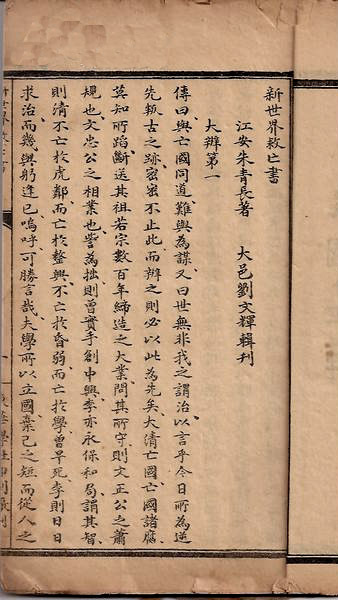 新世界救亡書
江安朱青長著 大邑劉文輝輯刊
大辨第一
傳曰與亡國同道難與為謀又曰世無非我之謂治以言乎今日所為逆
先叛古之跡密密不止此而辨之則必以此為先矣大清亡國亡國諸腐
莫知所蹈斷送其祖若宗數百年締造之大業問其所守則文正公之蕭
規也文忠公之相業也訾為拙則曾實手創中興李亦永保和局謂其智
則清不亡於虎鄰而亡於整興不亡於昏弱而亡於學曾早死李則日日
求治而幾與躬逢已嗚呼可勝言哉夫學所以立國棄己之短而從人之